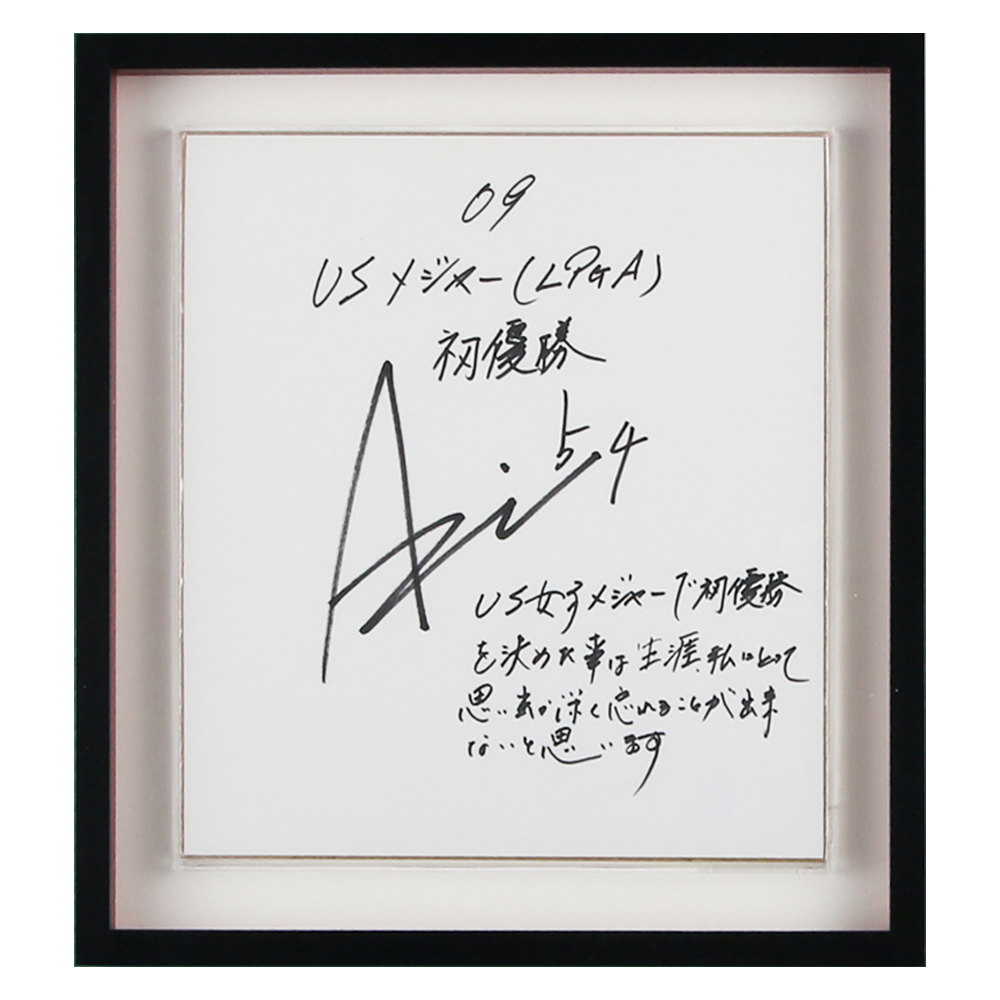 09
USメジャー(LPGA)
初優勝
Ai 54
US女子メジャーで初優勝
を決めた事は生涯、私にとって
思い出深く忘れることが出来
ないと思います